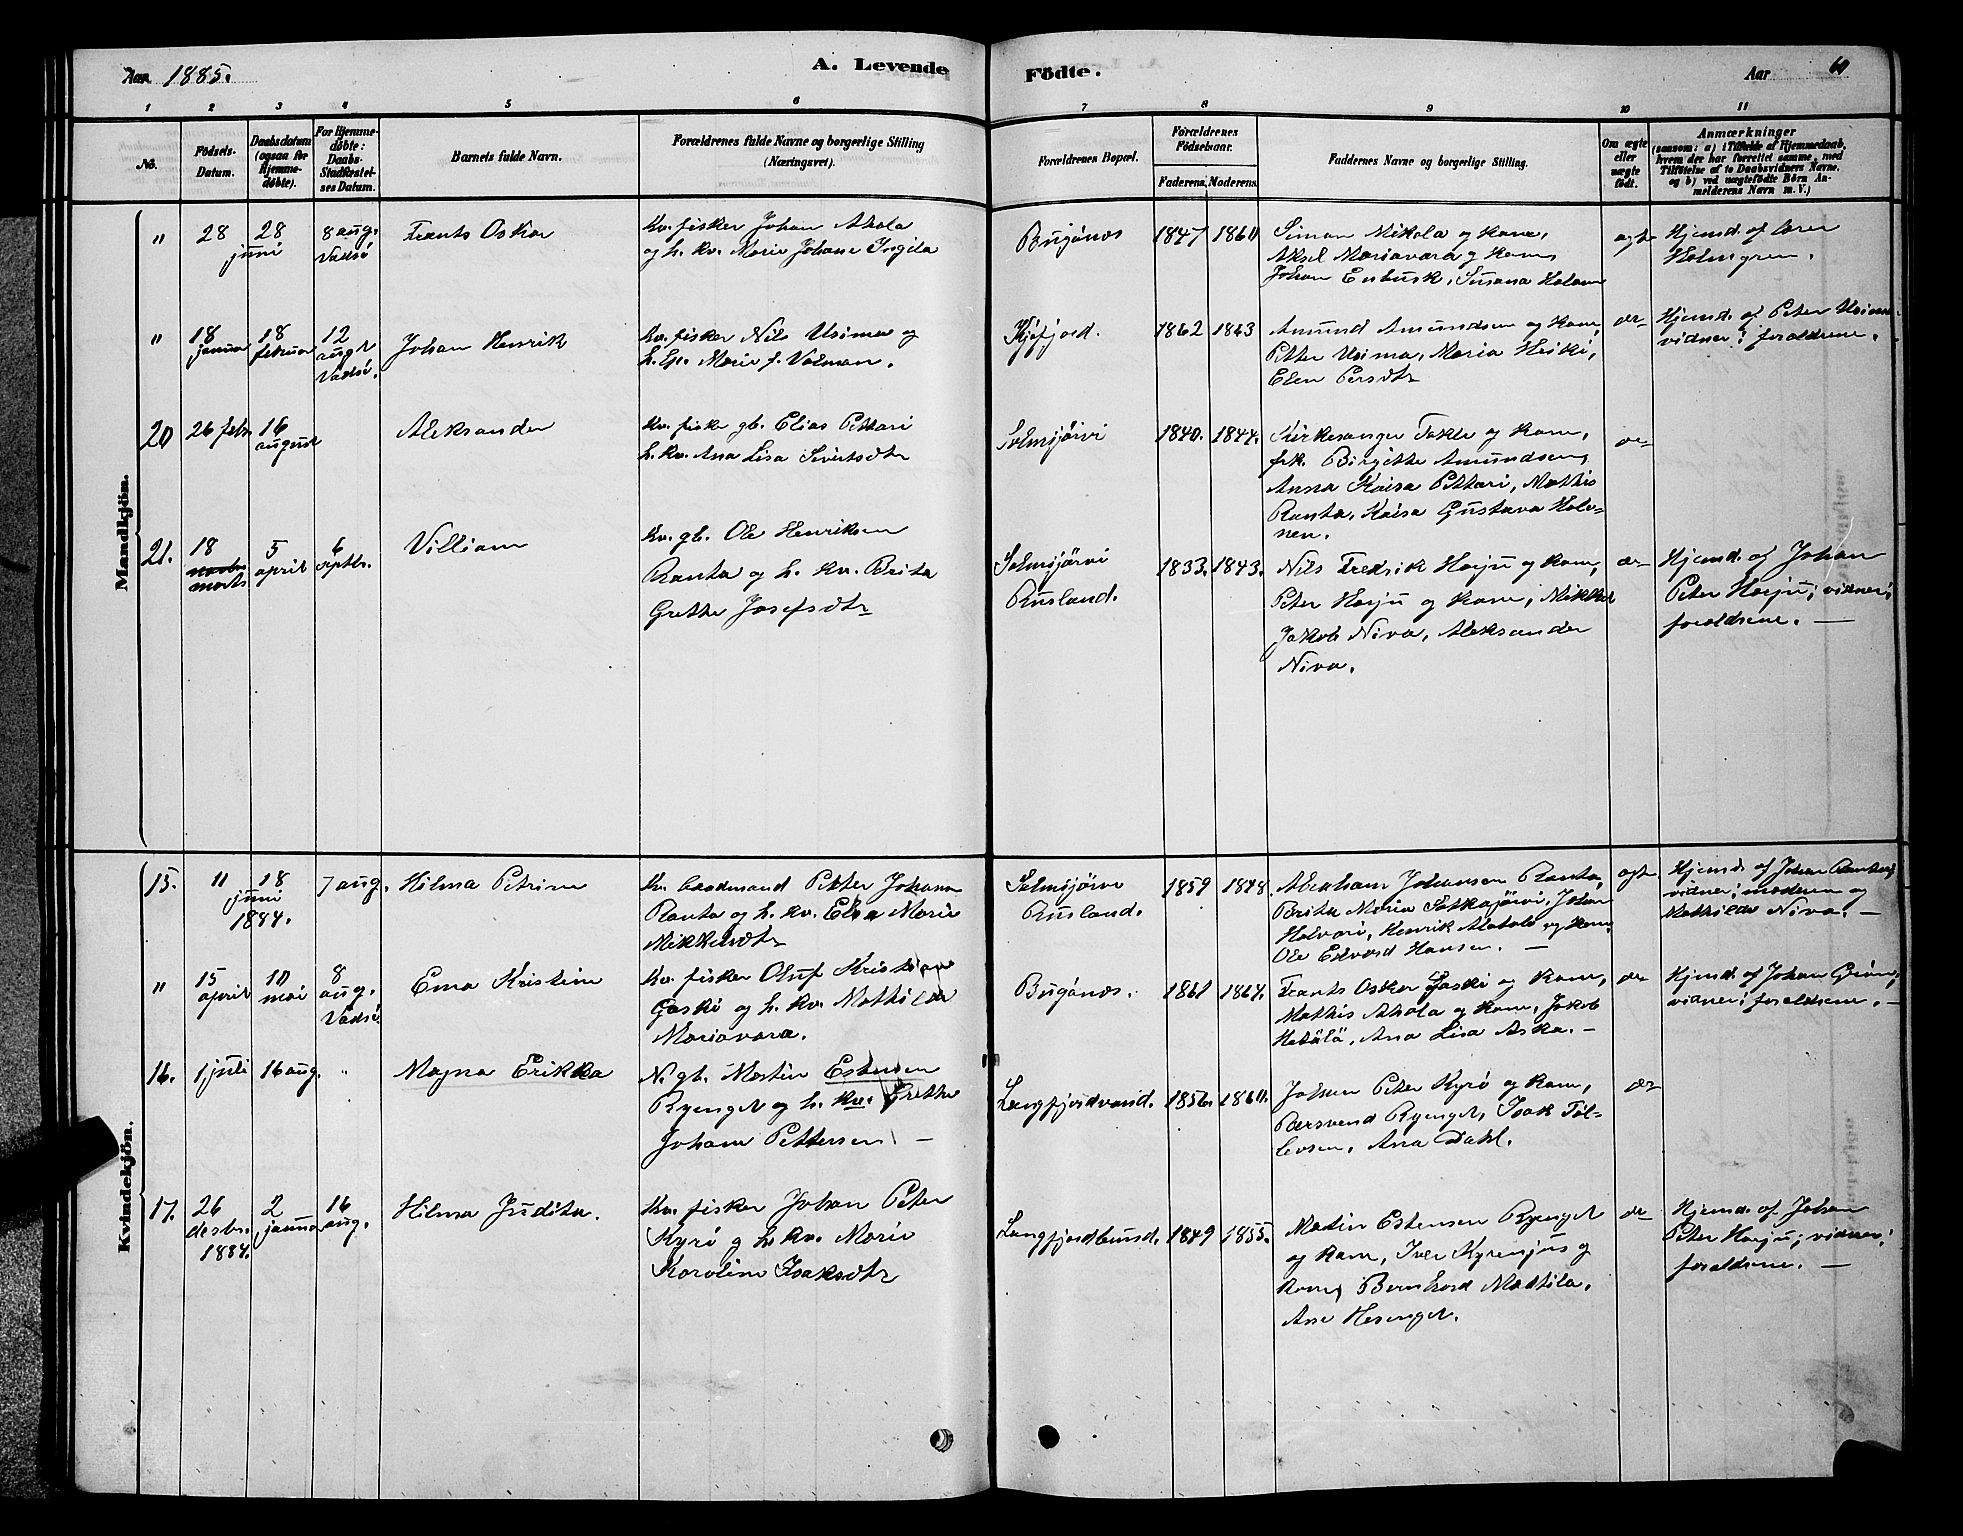 Aar 1885.
A. Levende Födte.
Aar
60
1 2 3 4 5 6 7 8 9 10 11
No.
Födsels-Datum.
Daabsdatum (ogsaa for Hjemme-døbte).
For Hjemme-døbte: Daabs-Stadfæstel-ses Datum.
Barnets fulde Navn.
Forældrenes fulde Navne og borgerlige Stilling (Næringsvei).
Forældrenes Bopæl.
Forældrenes Födselsaar.
Faderens. Moderens.
Faddernes Navne og borgerlige Stilling.
Om ægte eller uægte födt.
Anmærkninger
(saasom: a) i Tilfælde af Hjemmedaab, hvem der har forrettet samme, med Tilföielse af to Daabsvidners Navne, og b) ved uægtefödte Börn An-melderens Navn m. V.)
Mandkjön.
" 28 juni 28 8 aug. Vadsö
Frants Oskar
Kv. fisker Johan Ahola
og h. kv. Marie Johane Ingila
Bugönes 1847 1860
Simon Mikola og kone,
Aksel Mariavara og kone,
Johan Enbusk, Susana
ægte
Hjemd. af lærer
Holmgren.
" 18 januar 18 februar 12 augst Vadsö.
Johan Henrik
Kv. fisker Nils Usima og
h. Marie f. Valman.
Kjöfjord. 1862 1863
Amund Amundsen og kone,
Petter Usima, Maria Heiki,
Elen Persdtr
do-
Hjemd. af Peter Usima
vidner; forældrene.
20 26 febr 16 august
Aleksander
Kv. fisker gb. Elias Pettari
h. kv. Ana Lisa Sivertsdtr
Solmsjärvi 1840. 1844.
Kirkesanger Takle og kone,
frk. Birgitte Amundsen,
Anna Kaisa Pettari, Mathis
Ranta, Kaisa Gustava Halo-
nen.
do-
21. 18 marts 5 april 6 septbr.
Villiam
Kv. gb. Ole Henriksen
Ranta og h. kv. Brita
Grethe Josefsdtr
Solmsjärvi
Rusland. 1833. 1843.
Nils Fredrik Harju og kone,
Peter Harju og kone, Mikkel
Jakob Niva, Aleksander
Niva.
do-
Hjemd. af Johan
Peter Harju; vidner;
forældrene. —
Kvindekjön.
15. 11 18 juni 1884. 7 aug.
Hilma Petrine
Kv. baadmand Petter Johann
Ranta og h. kv. Elsa Marie
Mikkelsdtr
Solmsjärve
Rusland. 1859 1848.
Abraham Johansen Ranta,
Brita Maria Satkajärvi, Johan
Halvari, Henrik Alatalo og kone,
Ole Edvard Hansen. —
ægte
Hjemd. af Johan Ranta;
vidner; moderen og
Mathilde Niva. —
" 15 april 10 mai 8 aug. Vadsö
Ema Kristine
Kv. fisker Oluf Kristian
Gaski og h. kv. Mathilda
Mariavara.
Bugönes. 1861 1864.
Frants Oskar Gaski og kone,
Mathis Ahola og kone, Jakob
Ana Lisa Aska. —
do-
Hjemd. af Johan Grön,
vidner; forældrene. —
16. 1 juli 16 aug. "
Magna Erikka
N. gb. Martin Estensen
Ryenget og h. kv. Grethe
Johane Pettersen —
Langfjordvand. 1856. 1860.
Johan Peter Kyrö og kone,
Bersvend Ryenget, Isak Töl-
levsen, Ana Dahl.
do-
17. 26 desbr. 1884. 2 januar 16 aug.
Hilma Judita.
Kv. fisker Johan Peter
Kyrö og h. kv. Marie
Karoline Isaksdtr
Langfjordbund. 1849 1855.
Martin Estensen Ryenget
og kone, Iver og
kone, Bernhard Mattila,
Ane Hesenget.
do-
Hjemd. af Johan
Peter Harju; vidner;
forældrene. —